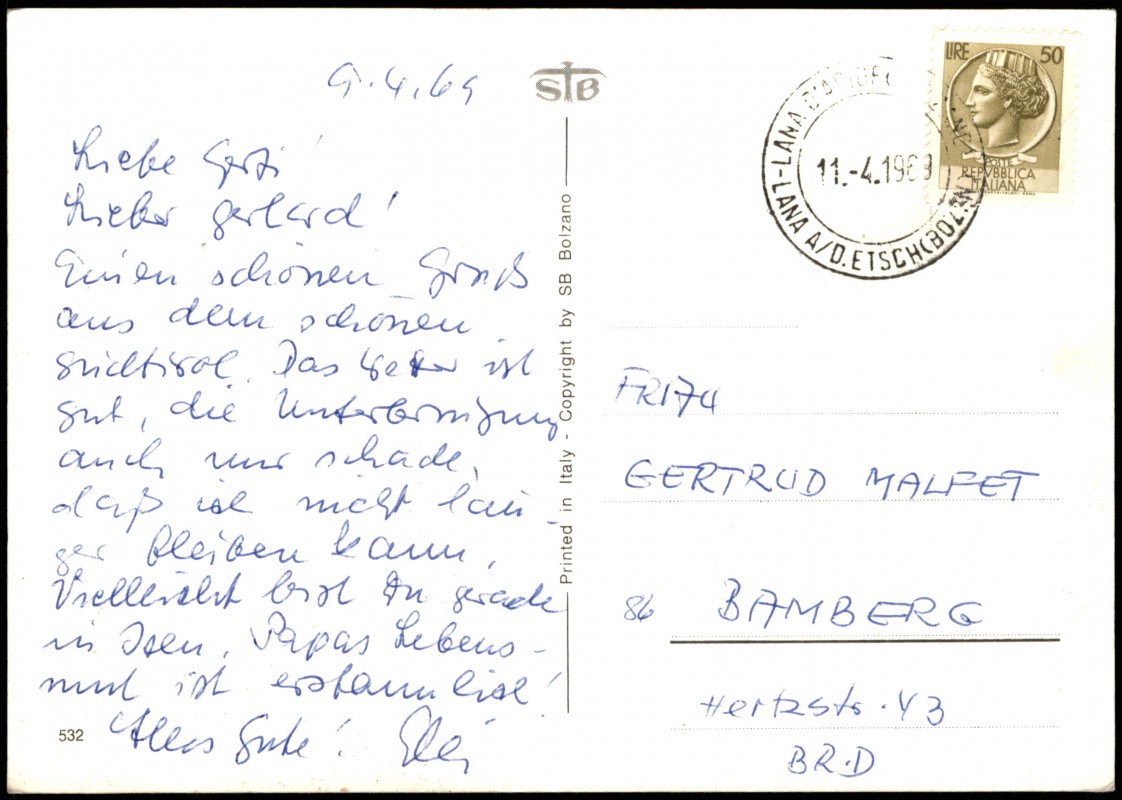 9.4.69
Liebe Gerti!
Lieber Gerhard!
Einen schönen Gruß
aus dem schönen
Südtirol. Das Wetter ist
gut, die Unterbringung
auch nur schade,
daß ich nicht län-
ger bleiben kann,
Vielleicht bist Du gerade
in Isen. Papas Lebens-
mut ist erstaunlich!
Alles Gute!
532
STB
Printed in Italy - Copyright by SB Bolzano
LIRE 50
POSTE
REPVBBLICA
ITALIANA
LANA
-LANA A/D.ETSCH(BOLZANO)
11.-4.1969
GERTRUD MALFET
86 BAMBERG
Hertzstr. 43
BRD